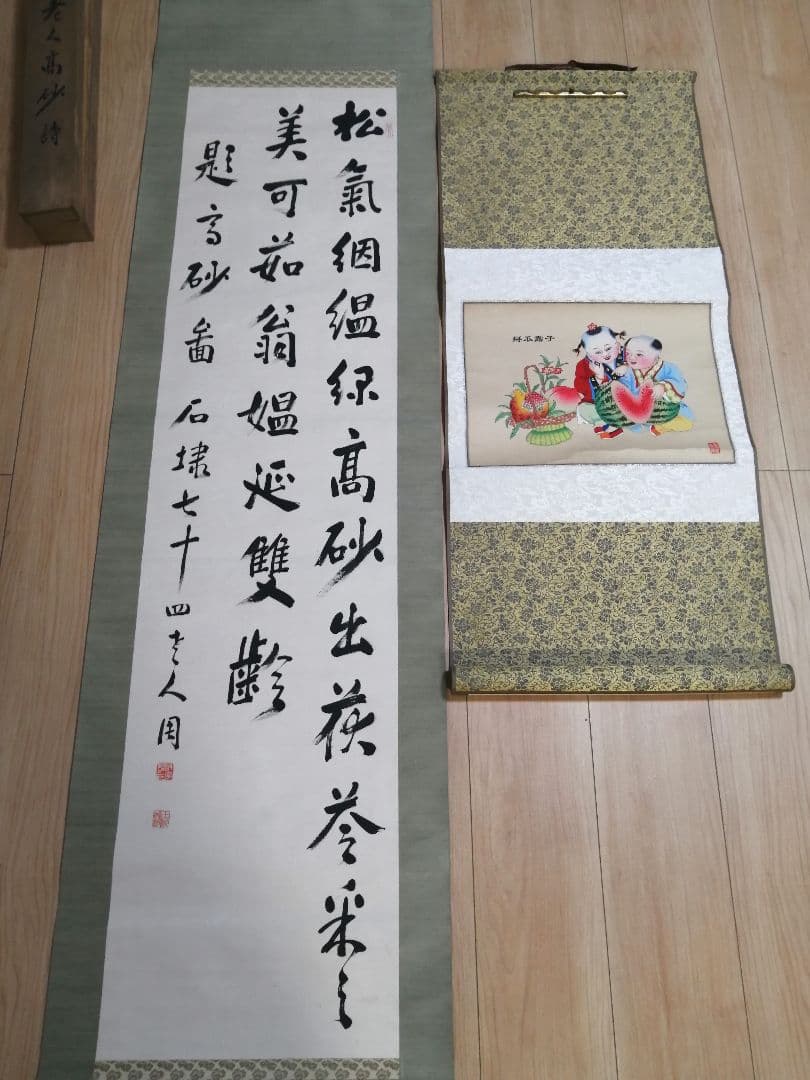 老人高砂詩
松氣絪縕綠高砂出茯苓采之
美可茹翁媼延雙齡
題高砂圖 石埭七十四老人周
瓜露子